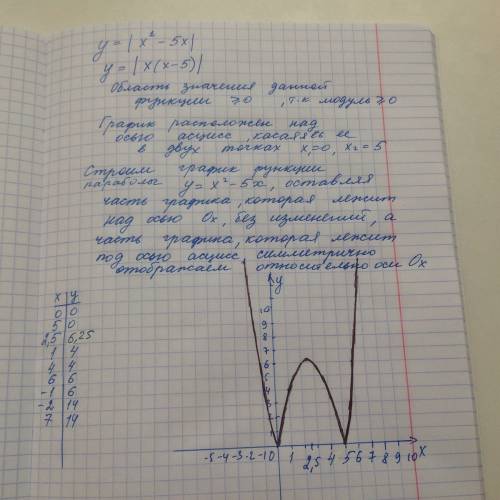 y = | x² - 5x |
y = | x(x-5) |
Область значения данной
функции ≥0 , т.к модуль ≥0
График расположен над
осью асцисс, касаясь ее
в двух точках x=0, x₂=5
Строим график функции
параболы y = x² - 5x, оставляя
часть графика, которая лежит
над осью Ox, без изменений, а
часть графика, которая лежит
под осью асцисс, симметрично
отображаем относительно оси Ox
x y
0 0
5 0
2,5 6,25
1 4
4 4
6 6
-1 6
-2 14
7 14
y
-5 -4 -3 -2 -1 0 1 2,5 4 5 6 7 8 9 10 x